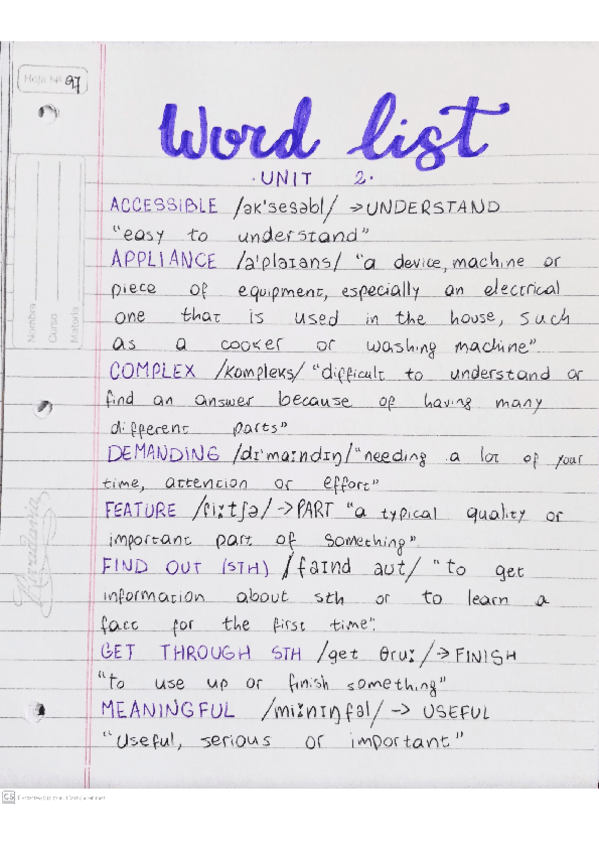 Hoja Nº 97
Word list
·UNIT 2·
ACCESSIBLE /əkˈsesəbl/ →UNDERSTAND
"easy to understand"
APPLIANCE /əˈplaɪans/ "a device, machine or
piece of equipment, especially an electrical
one that is used in the house, such
as a cooker or washing machine"
COMPLEX /kompleks/ "difficult to understand or
find an answer because of having many
different parts"
DEMANDING /dɪˈmaːndɪŋ/ "needing a lot of your
time, attention or effort"
FEATURE /fiːtʃə/ →PART "a typical quality or
important part of something"
FIND OUT (STH) /faɪnd aut/ "to get
information about sth or to learn a
fact for the first time".
GET THROUGH STH /get θruː/ → FINISH
"to use up or finish something"
MEANINGFUL /miːnɪŋfəl/ → USEFUL
"Useful, serious or important"
Nombre
Curso
Materia